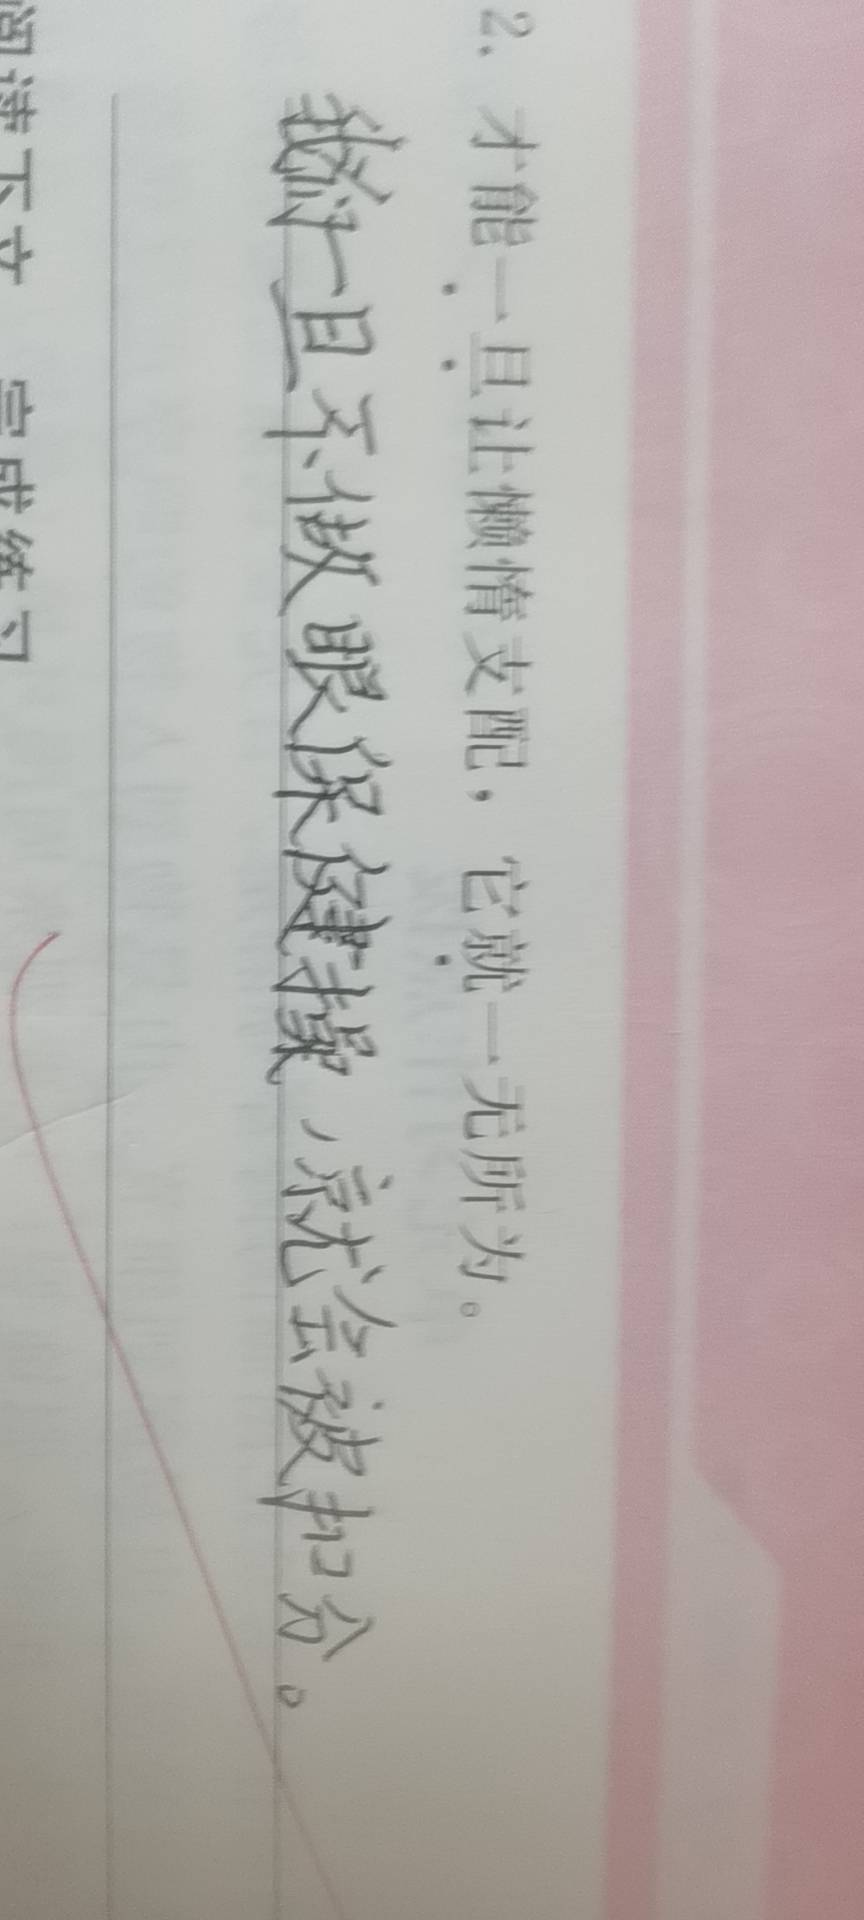 2. 才能一旦让懒惰支配，它就一无所为。
我们一旦不做眼保健操，就会被扣分。
阅读下文 完成练习